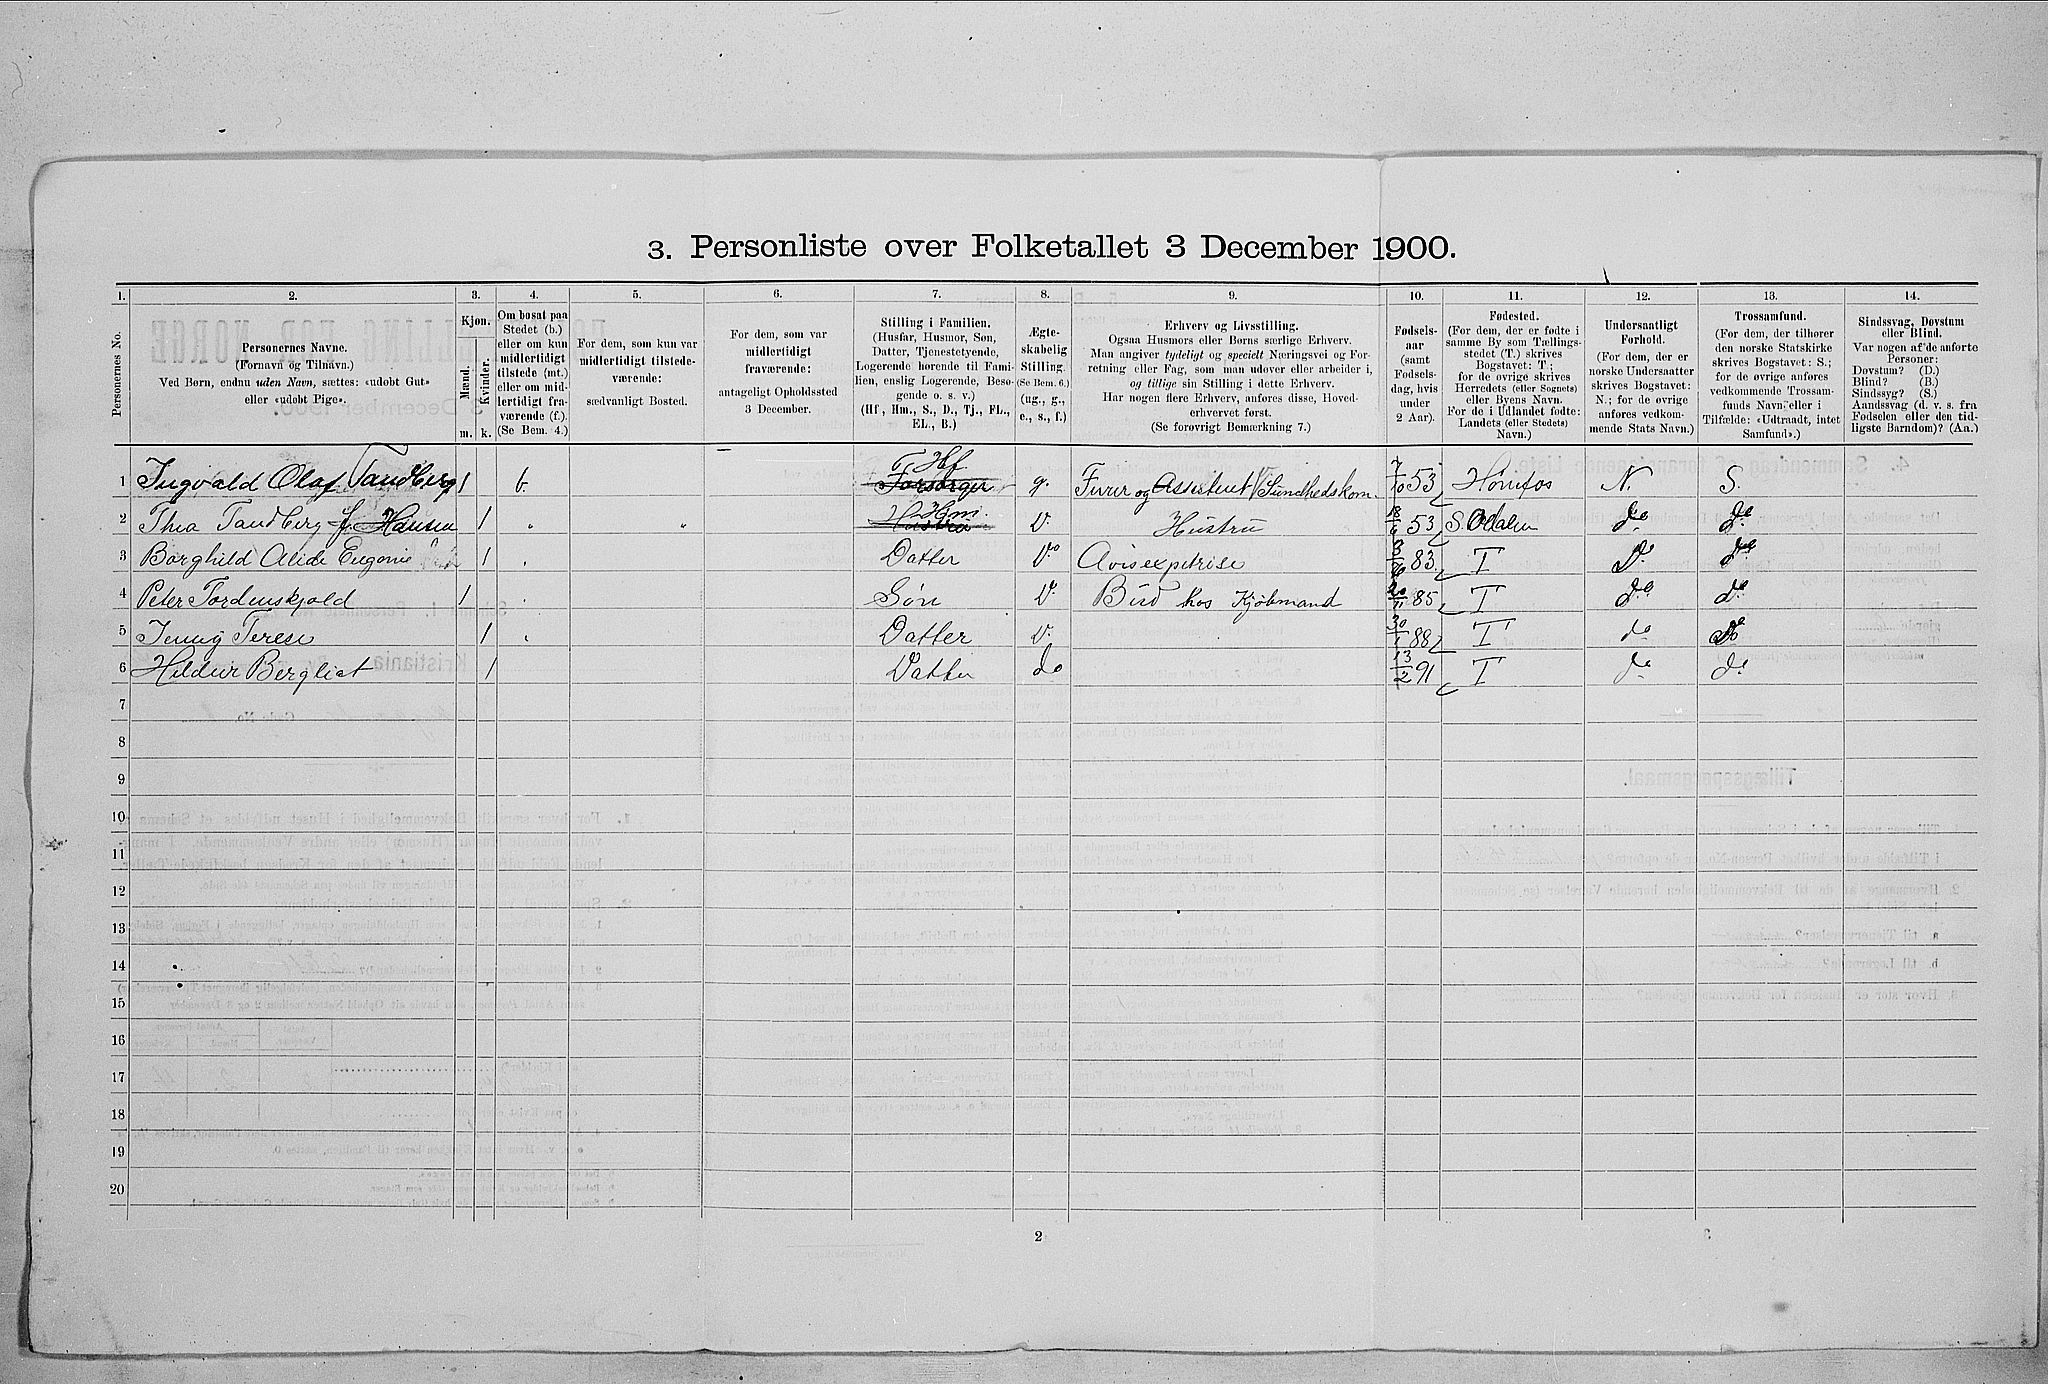 3. Personliste over Folketallet 3 December 1900.
1. 2. 3. 4. 5. 6. 7. 8. 9. 10. 11. 12. 13. 14.
Personernes No.
Personernes Navne.
(Fornavn og Tilnavn.)
Ved Børn, endnu uden Navn, sættes: «udøbt Gut»
eller «udøbt Pige».
Kjøn.
Mænd.
Kvinder.
m. k.
Om bosat paa
Stedet (b.)
eller om kun
midlertidigt
tilstede (mt.)
eller om mid-
lertidigt fra-
værende (f.).
(Se Bem. 4.)
For dem, som kun var
midlertidigt tilstede-
værende:
sædvanligt Bosted.
For dem, som var
midlertidigt
fraværende:
antageligt Opholdssted
3 December.
Stilling i Familien.
(Husfar, Husmor, Søn,
Datter, Tjenestetyende,
Logerende hørende til Fami-
lien, enslig Logerende, Besø-
gende o. s. v.)
(Hf, Hm., S., D., Tj., FL.,
EL., B.)
Ægte-
skabelig
Stilling.
(Se Bem. 6.)
(ug., g.,
e., s., f.)
Erhverv og Livsstilling.
Ogsaa Husmors eller Børns særlige Erhverv.
Man angiver tydeligt og specielt Næringsvei og For-
retning eller Fag, som man udøver eller arbeider i,
og tillige sin Stilling i dette Erhverv.
Har nogen flere Erhverv, anføres disse, Hoved-
erhvervet først.
(Se forøvrigt Bemærkning 7.)
Fødsels-
aar
(samt
Fødsels-
dag, hvis
under
2 Aar).
Fødested.
(For dem, der er fødte i
samme By som Tællings-
stedet (T.) skrives
Bogstavet: T;
for de øvrige skrives
Herredets (eller Sognets)
eller Byens Navn.
For de i Udlandet fødte:
Landets (eller Stedets)
Navn.)
Undersaatligt
Forhold.
(For dem, der er
norske Undersaatter
skrives Bogstavet:
N.; for de øvrige
anføres vedkom-
mende Stats Navn.)
Trossamfund.
(For dem, der tilhører
den norske Statskirke
skrives Bogstavet: S.;
for de øvrige anføres
vedkommende Trossam-
funds Navn, eller i
Tilfælde: «Udtraadt, intet
Samfund».)
Sindssvag, Døvstum
eller Blind.
Var nogen af de anførte
Personer:
Døvstum? (D.)
Blind? (B.)
Sindssyg? (S.)
Aandssvag (d. v. s. fra
Fødselen eller den tid-
ligste Barndom)? (Aa.)
1 Ingvald Olaf Tandberg 1 b. Forsørger Hf g. Furer og Assistent v/ Sundhedskom. 7/10 53 Hønefos N. S.
2 Thea Tandberg f. Hansen 1 " " Hustru Hm V. Hustru 18/ 53 S. Odalen do do
3 Borghild Alide Eugenie 1 " Datter Do Avisexpetrise 83 T Do do
4 Peter Tordenskjold 1 Søn D. Bud hos Kjøbmand 20/11 85 T do do
5 Jenny Terese 1 " Datter D. 30/1 88 T do Do
6 Hildur Bergliot 1 Datter do 13/2 91 T do do
7
8
9
10
11
12
13
14
15
16
17
18
19
20
2